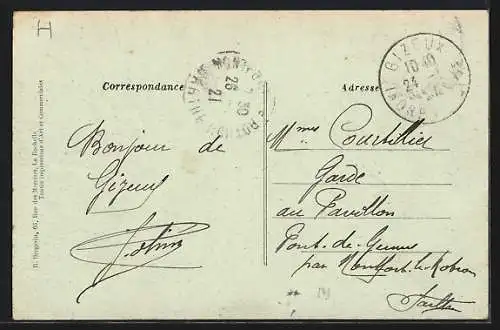 H
Correspondance
Adresse
GIZEUX
10 40
24
INDRE
30
26
21
Bonjour de
Gizeux
Mmes Courtillier
Garde
au Pavillon
Pont-de-Gennes
par Montfort-le-Rotrou
Sarthe
R. Bergevin, 67, Rue des Merciers, La Rochelle
Toutes impressions d'Art et Commerciales